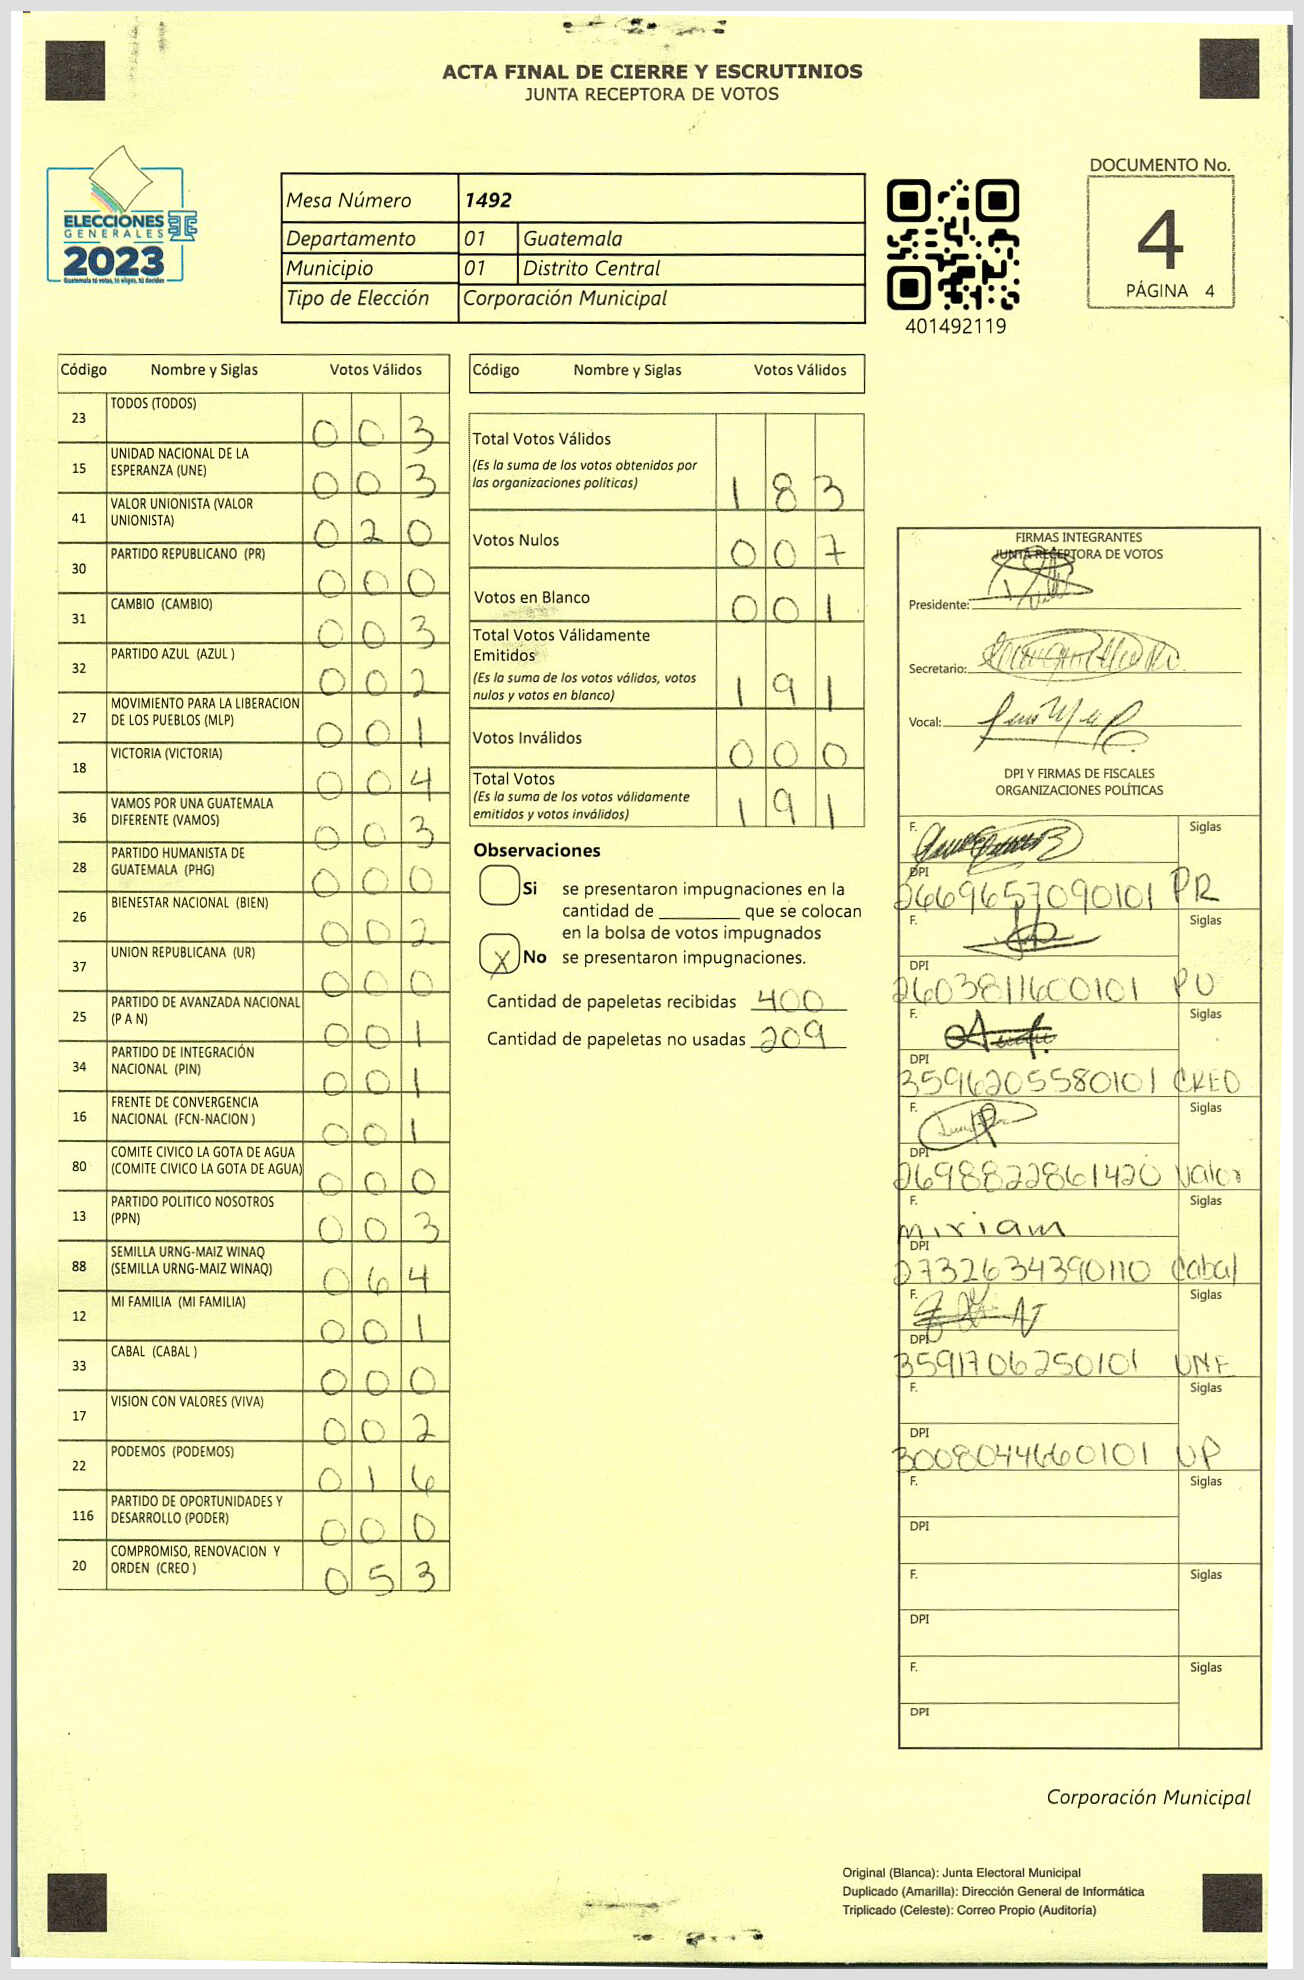 ACTA FINAL DE CIERRE Y ESCRUTINIOS
JUNTA RECEPTORA DE VOTOS
ELECCIONES
GENERALES
2023
Guatemala tú votas, tú eliges, tú decides
Mesa Número 1492
Departamento 01 Guatemala
Municipio 01 Distrito Central
Tipo de Elección Corporación Municipal
401492119
DOCUMENTO No.
4
PÁGINA 4
Código Nombre y Siglas Votos Válidos
23 TODOS (TODOS) 0 0 3
15 UNIDAD NACIONAL DE LA
ESPERANZA (UNE) 0 0 3
41 VALOR UNIONISTA (VALOR
UNIONISTA) 0 2 0
30 PARTIDO REPUBLICANO (PR) 0 0 0
31 CAMBIO (CAMBIO) 0 0 3
32 PARTIDO AZUL (AZUL ) 0 0 2
27 MOVIMIENTO PARA LA LIBERACION
DE LOS PUEBLOS (MLP) 0 0 1
18 VICTORIA (VICTORIA) 0 0 4
36 VAMOS POR UNA GUATEMALA
DIFERENTE (VAMOS) 0 0 3
28 PARTIDO HUMANISTA DE
GUATEMALA (PHG) 0 0 0
26 BIENESTAR NACIONAL (BIEN) 0 0 2
37 UNION REPUBLICANA (UR) 0 0 0
25 PARTIDO DE AVANZADA NACIONAL
(P A N) 0 0 1
34 PARTIDO DE INTEGRACIÓN
NACIONAL (PIN) 0 0 1
16 FRENTE DE CONVERGENCIA
NACIONAL (FCN-NACION ) 0 0 1
80 COMITE CIVICO LA GOTA DE AGUA
(COMITE CIVICO LA GOTA DE AGUA) 0 0 0
13 PARTIDO POLITICO NOSOTROS
(PPN) 0 0 3
88 SEMILLA URNG-MAIZ WINAQ
(SEMILLA URNG-MAIZ WINAQ) 0 6 4
12 MI FAMILIA (MI FAMILIA) 0 0 1
33 CABAL (CABAL ) 0 0 0
17 VISION CON VALORES (VIVA) 0 0 2
22 PODEMOS (PODEMOS) 0 1 6
116 PARTIDO DE OPORTUNIDADES Y
DESARROLLO (PODER) 0 0 0
20 COMPROMISO, RENOVACION Y
ORDEN (CREO ) 0 5 3
Código Nombre y Siglas Votos Válidos
Total Votos Válidos
(Es la suma de los votos obtenidos por
las organizaciones políticas) 1 8 3
Votos Nulos 0 0 7
Votos en Blanco 0 0 1
Total Votos Válidamente
Emitidos
(Es la suma de los votos válidos, votos
nulos y votos en blanco) 1 9 1
Votos Inválidos 0 0 0
Total Votos
(Es la suma de los votos válidamente
emitidos y votos inválidos) 1 9 1
Observaciones
Si se presentaron impugnaciones en la
cantidad de ________ que se colocan
en la bolsa de votos impugnados
X No se presentaron impugnaciones.
Cantidad de papeletas recibidas 400
Cantidad de papeletas no usadas 209
FIRMAS INTEGRANTES
JUNTA RECEPTORA DE VOTOS
Presidente:
Secretario:
Vocal:
DPI Y FIRMAS DE FISCALES
ORGANIZACIONES POLÍTICAS
F. Siglas
DPI
2669657090101 PR
F. Siglas
DPI
2603811600101 PU
F. Siglas
DPI
3596205580101 CREO
F. Siglas
DPI
2698822861420 Valor
F. Siglas
miriam
DPI
2732634390110 Cabal
F. Siglas
DPI
3591706250101 UNE
F. Siglas
DPI
3008044660101 UP
F. Siglas
DPI
F. Siglas
DPI
F. Siglas
DPI
Corporación Municipal
Original (Blanca): Junta Electoral Municipal
Duplicado (Amarilla): Dirección General de Informática
Triplicado (Celeste): Correo Propio (Auditoría)